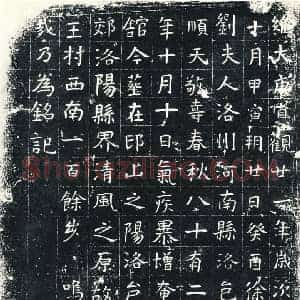 維大唐貞觀廿一年歲次
十月甲寅朔廿日癸酉徐
劉夫人洛州河南縣洛邑
順天敬尋春秋八十有二
年十月十日氣疾暴增奄
舘今葬在邙山之陽洛
郊洛陽縣界清風之原
王村西南一百餘步嗚
哉乃為銘記